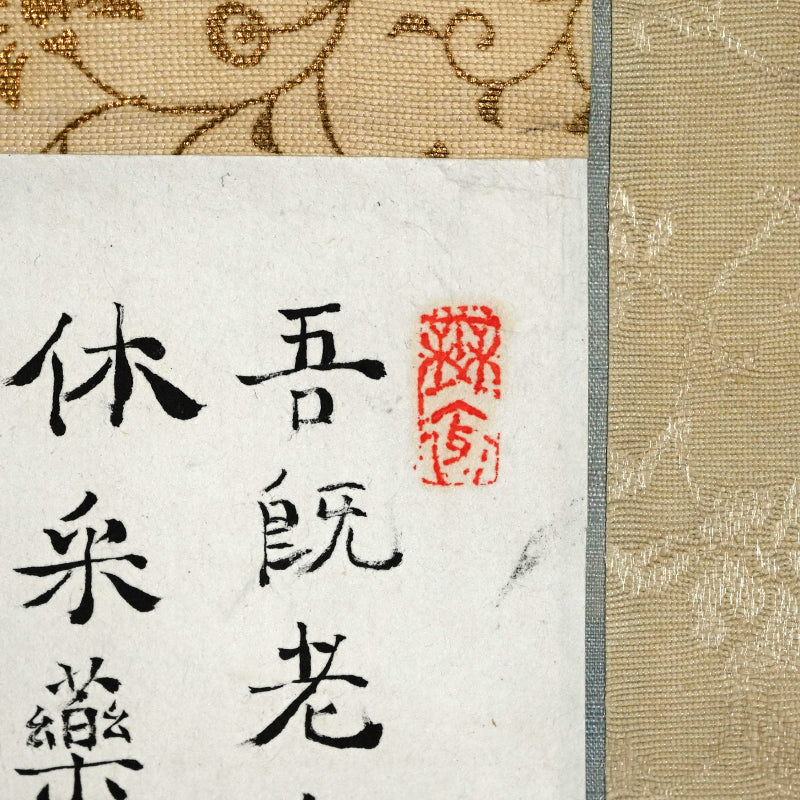 吾既老
休采藥